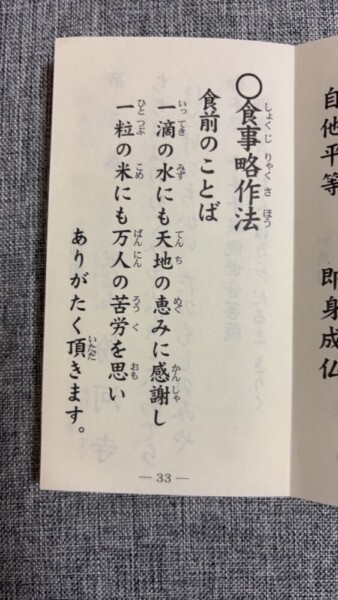 自他平等　即身成仏
〇食事略作法
しょくじりゃくさほう
食前のことば
一滴の水にも天地の恵みに感謝し
いってき　みず　てんち　めぐ　かんしゃ
一粒の米にも万人の苦労を思い
ひとつぶ　こめ　ばんにん　くろう　おも
ありがたく頂きます。
いただ
— 33 —